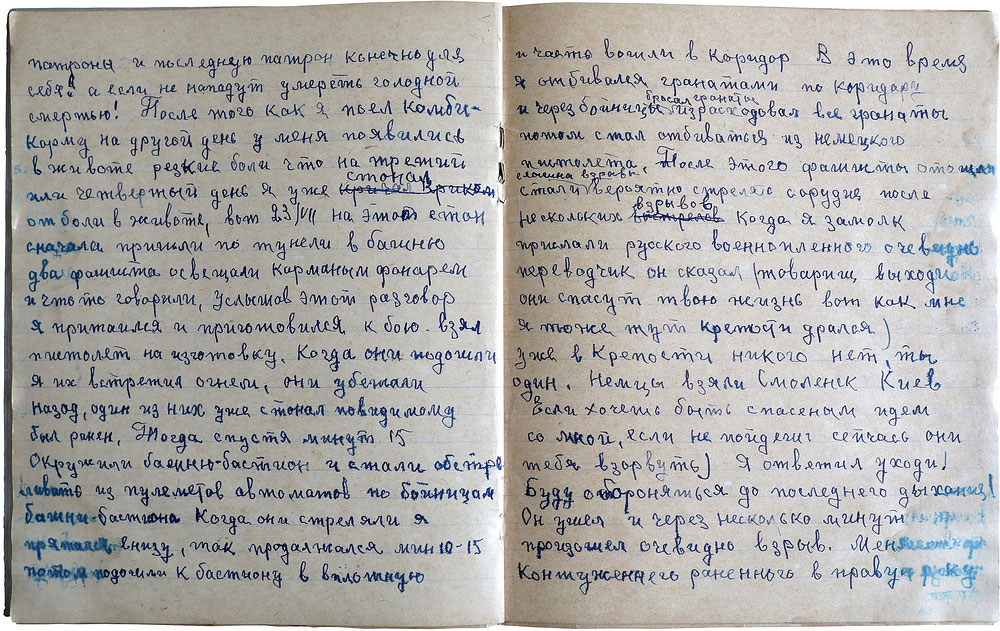 патроны и последную патрон конечно для
себя! а если не нападут умереть голодной
смертью! После того как я поел комби-
корму на другой день у меня появились
в животе резкие боли что на третий
стонал
или четвертый день я уже кричал криком
от боли в животе, вот 23/VII на этот стон
сначала пришли по тунели в башню
два фашиста освещали карманым фонарем
и что то говорили, Услышав этот разговор
я притаился и приготовился к бою. взял
пистолет на изготовку. Когда они подошли
я их встретил огнем, они убежали
назад, один из них уже стонал повидимому
был ранен, Тогда спустя минут 15
Окружили башню-бастион и стали обстре
ливать из пулеметов автоматов по бойницам
башни-бастиона Когда они стреляли я
прятался внизу, так продолжался мин 10-15
потом подошли к бастиону в вплотную
и часть вошли в коридор В это время
я отбивался гранатами по коридору
бросал гранаты
и через бойницы израсходовал все гранаты
потом стал отбиваться из немецкого
пистолета. После этого фашисты отошли
слышна взрывы
стали вероятно стрелять с орудия после
взрывов
нескольких выстрелов Когда я замолк
прислали русского военнопленного очевидно
переводчик он сказал (товарищ выходи
они спасут твою жизнь вот как мне
я тоже тут крепости дрался)
уже в Крепости никого нет, ты
один. Немцы взяли Смоленск Киев
Если хочешь быть спасеным идем
со мной, если не пойдешь сейчась они
тебя взорвуть) Я ответил уходи!
Буду обороняться до последнего дыхания!
Он ушел и через несколько минут
произошел очевидно взрыв. Меня
Контуженнего раненного в правую руку